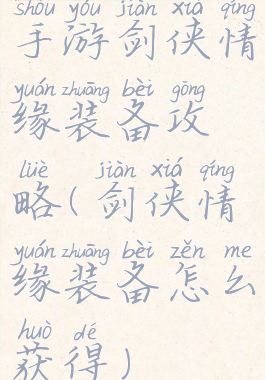 shǒu yóu jiàn xiá qíng
手游剑侠情
yuán zhuāng bèi gōng
缘装备攻
lüè jiàn xiá qíng
略(剑侠情
yuán zhuāng bèi zěn me
缘装备怎么
huò dé
获得)